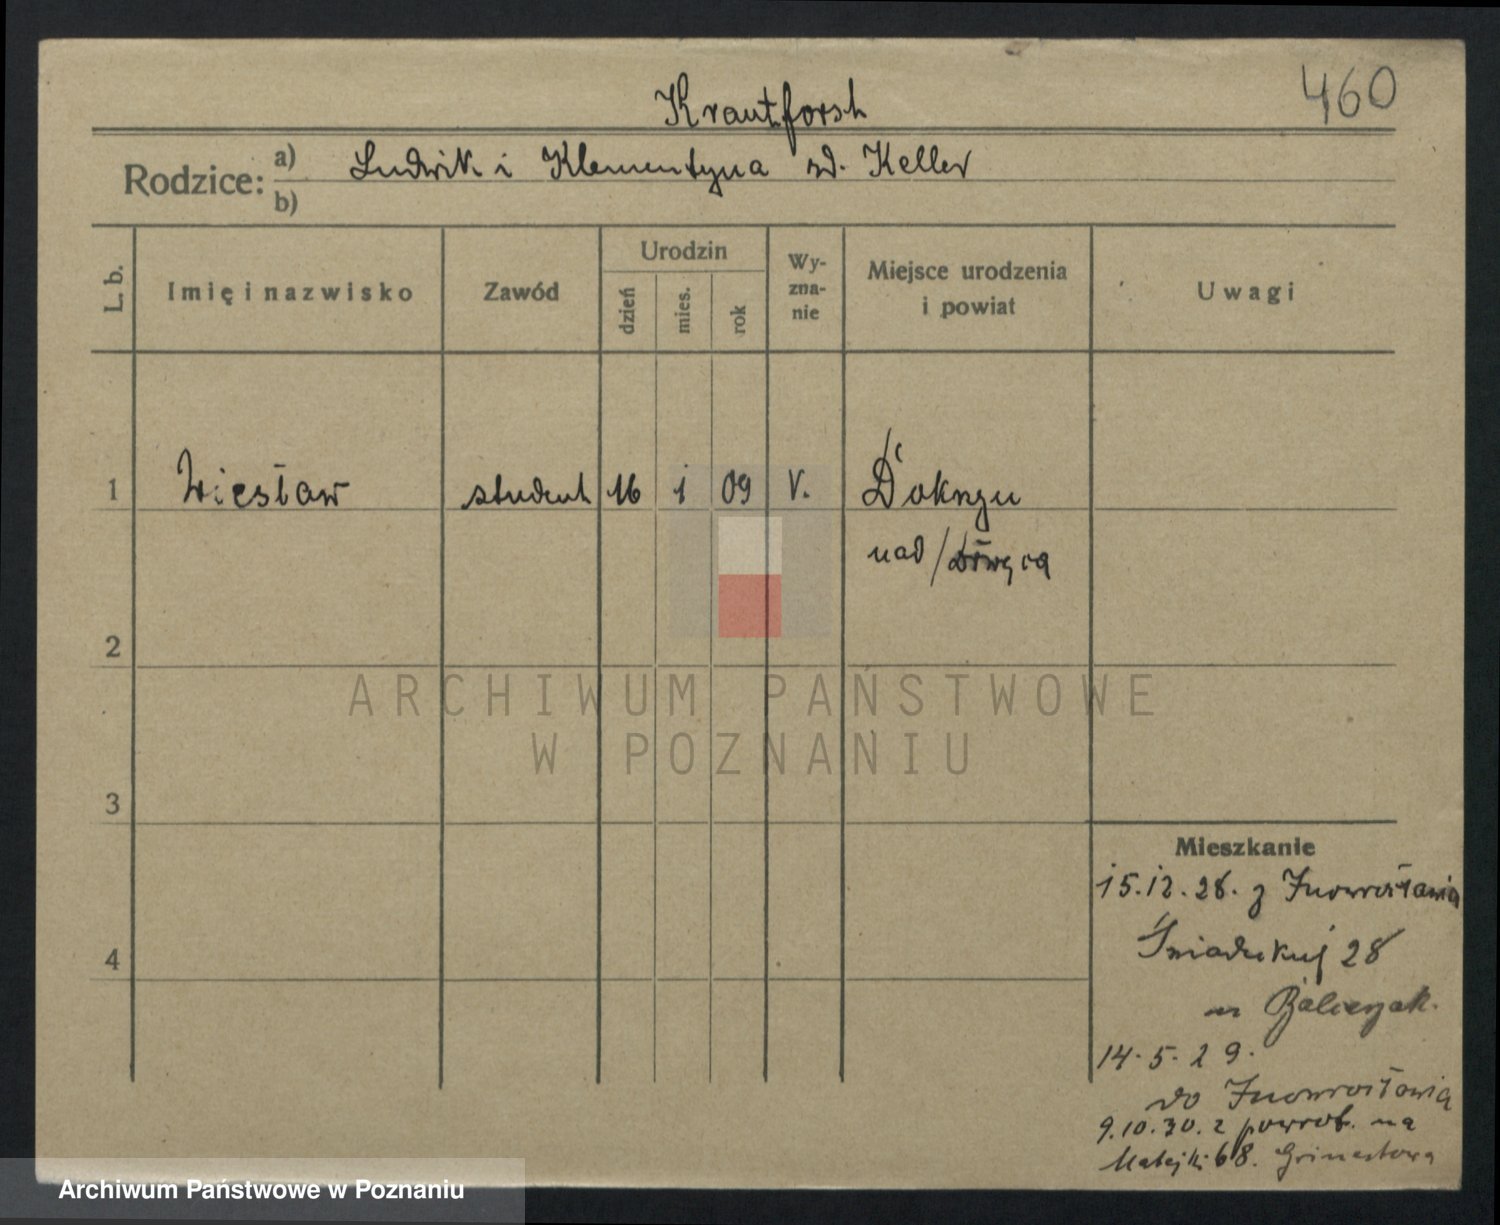 460
Krautforst
Rodzice: a) Ludwik i Klementyna zd. Keller
b)
L. b. Imię i nazwisko Zawód Urodzin dzień mies. rok Wyznanie Miejsce urodzenia i powiat Uwagi
1 Wiesław student 16 1 09 r.
nad
2
ARCHIWUM PAŃSTWOWE
W POZNANIU
3
4
Mieszkanie
15.12.28. z Inowrocławia
Śniadeckiej 28
14.5.29.
do Inowrocławia
9.10.30. z powrot. na
Matejki 68.
Archiwum Państwowe w Poznaniu